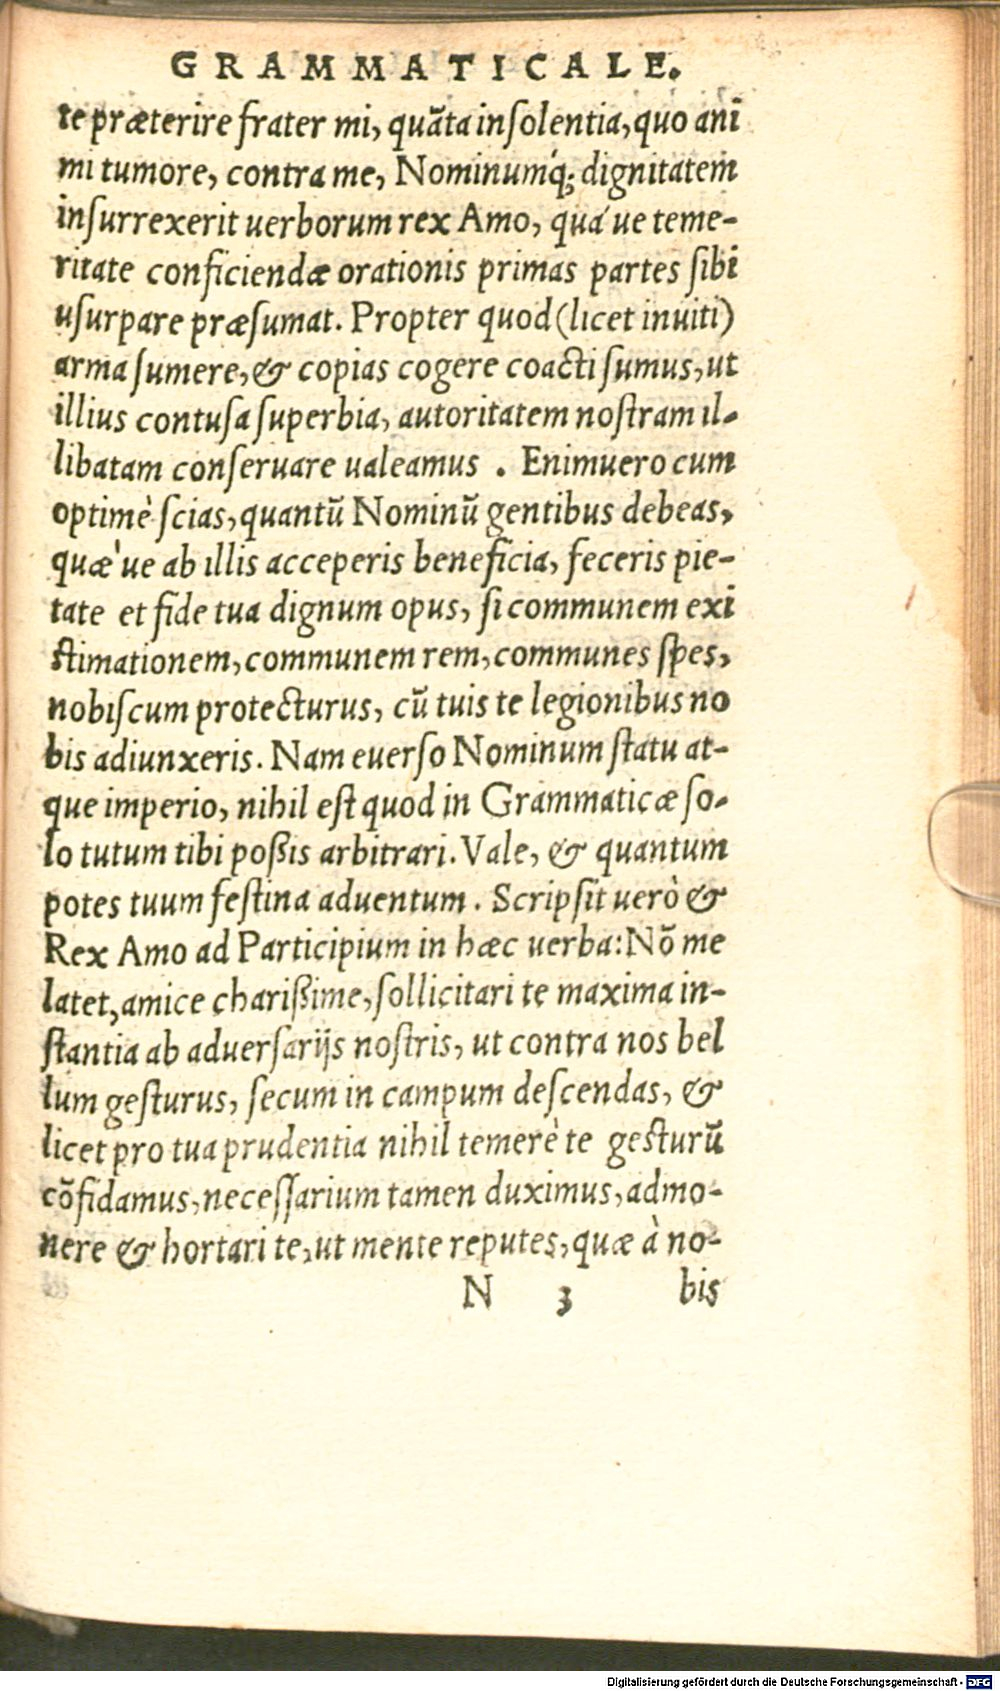 GRAMMATICALE.
te præterire frater mi, quãta insolentia, quo anī
mi tumore, contra me, Nominumq́; dignitatem
insurrexerit uerborum rex Amo, quá ue teme-
ritate conficiendæ orationis primas partes sibi
usurpare præsumat. Propter quod (licet inuiti)
arma sumere, & copias cogere coacti sumus, ut
illius contusa superbia, autoritatem nostram il-
libatam conseruare ualeamus . Enimuero cum
optimè scias, quantũ Nominũ gentibus debeas,
quæ'ue ab illis acceperis beneficia, feceris pie-
tate et fide tua dignum opus, si communem exi
stimationem, communem rem, communes spes,
nobiscum protecturus, cũ tuis te legionibus no
bis adiunxeris. Nam euerso Nominum statu at-
que imperio, nihil est quod in Grammaticæ so-
lo tutum tibi poßis arbitrari. Vale, & quantum
potes tuum festina aduentum . Scripsit uerò &
Rex Amo ad Participium in hæc uerba: Nõ me
latet, amice charißime, sollicitari te maxima in-
stantia ab aduersarijs nostris, ut contra nos bel
lum gesturus, secum in campum descendas, &
licet pro tua prudentia nihil temerè te gesturũ
cõfidamus, necessarium tamen duximus, admo-
nere & hortari te, ut mente reputes, quæ à no-
N 3 bis
Digitalisierung gefördert durch die Deutsche Forschungsgemeinschaft - DFG